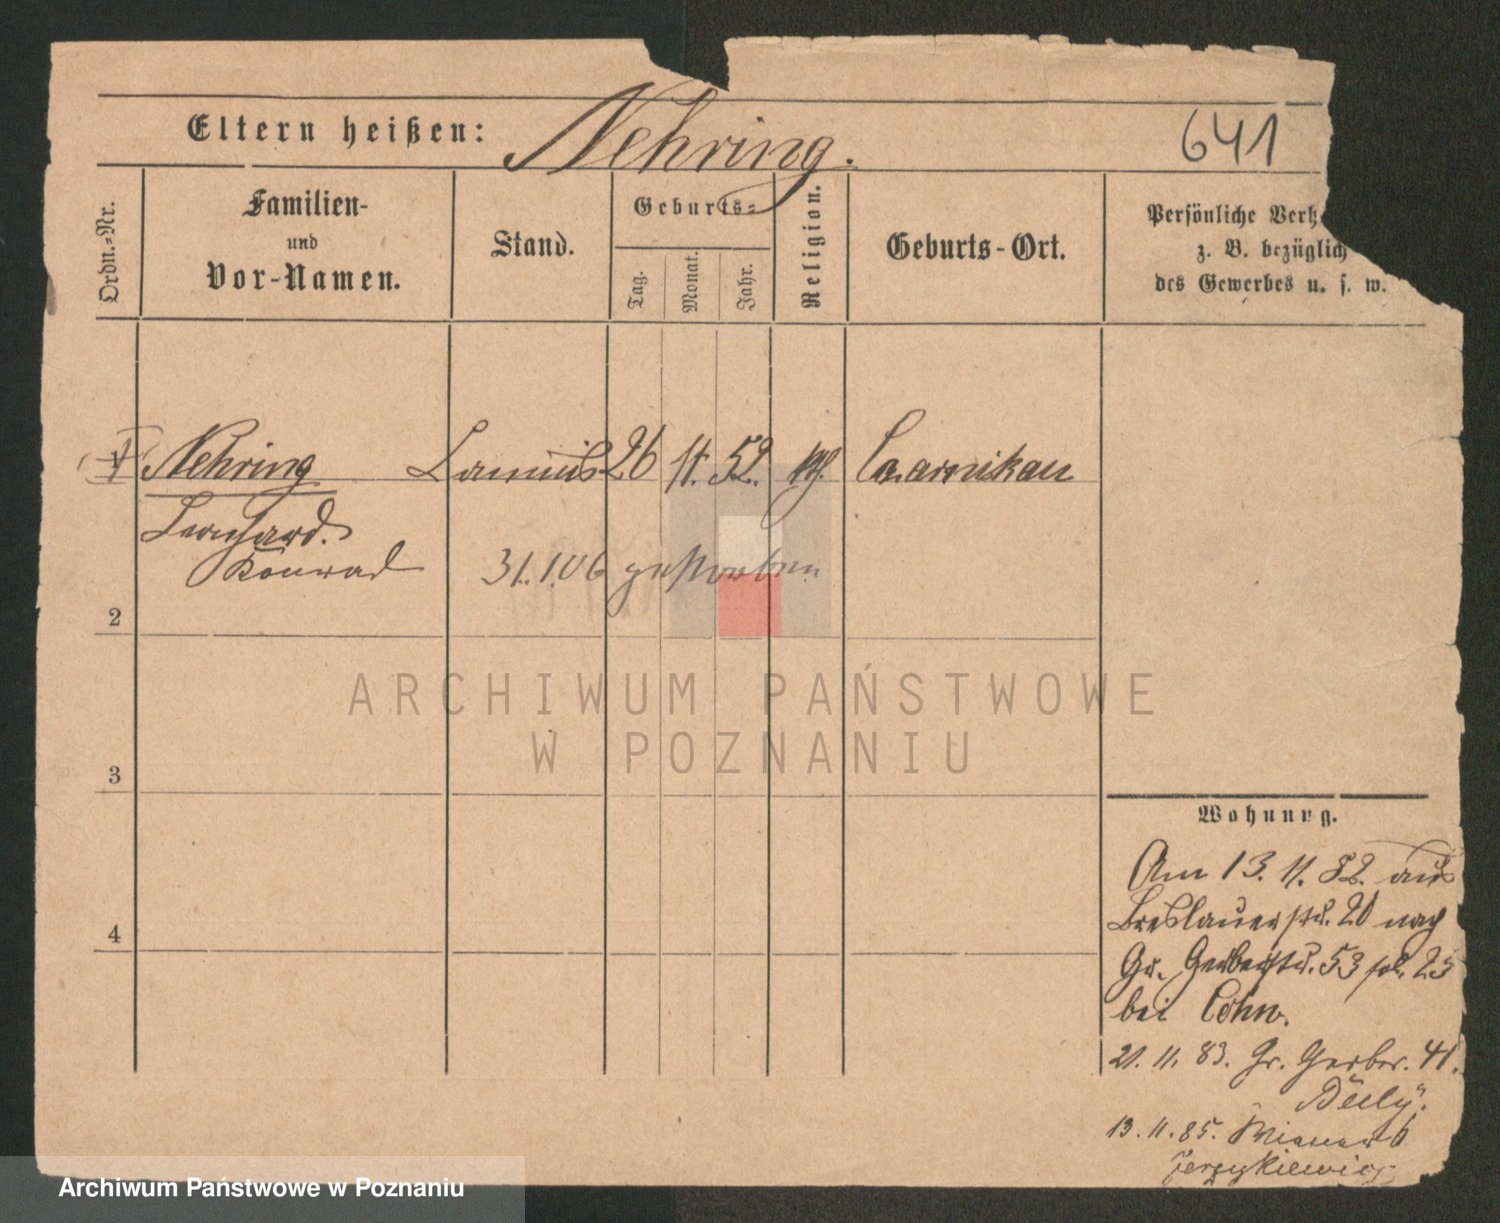 Eltern heißen: Nehring. 641
Ordn.=Nr.
Familien-
und
Vor-Namen.
Stand.
Geburts=
Tag.
Monat.
Jahr.
Religion.
Geburts-Ort.
Persönliche Verh
z. B. bezüglich
des Gewerbes u. s. w.
1 Nehring 26 11. 52. Czarnikau
Leonhard.
Konrad 31.1.06 gestorben
2
3
4
Wohnung.
Am 13. 11. 82. aus
Breslauerstr. 20 nach
Gr. Gerberstr. 53 23
bei Cohn.
21. 11. 83. Gr. Gerber. 41.
13. 11. 85. Wiener 6
Jerzykiewicz
ARCHIWUM PAŃSTWOWE
W POZNANIU
Archiwum Państwowe w Poznaniu